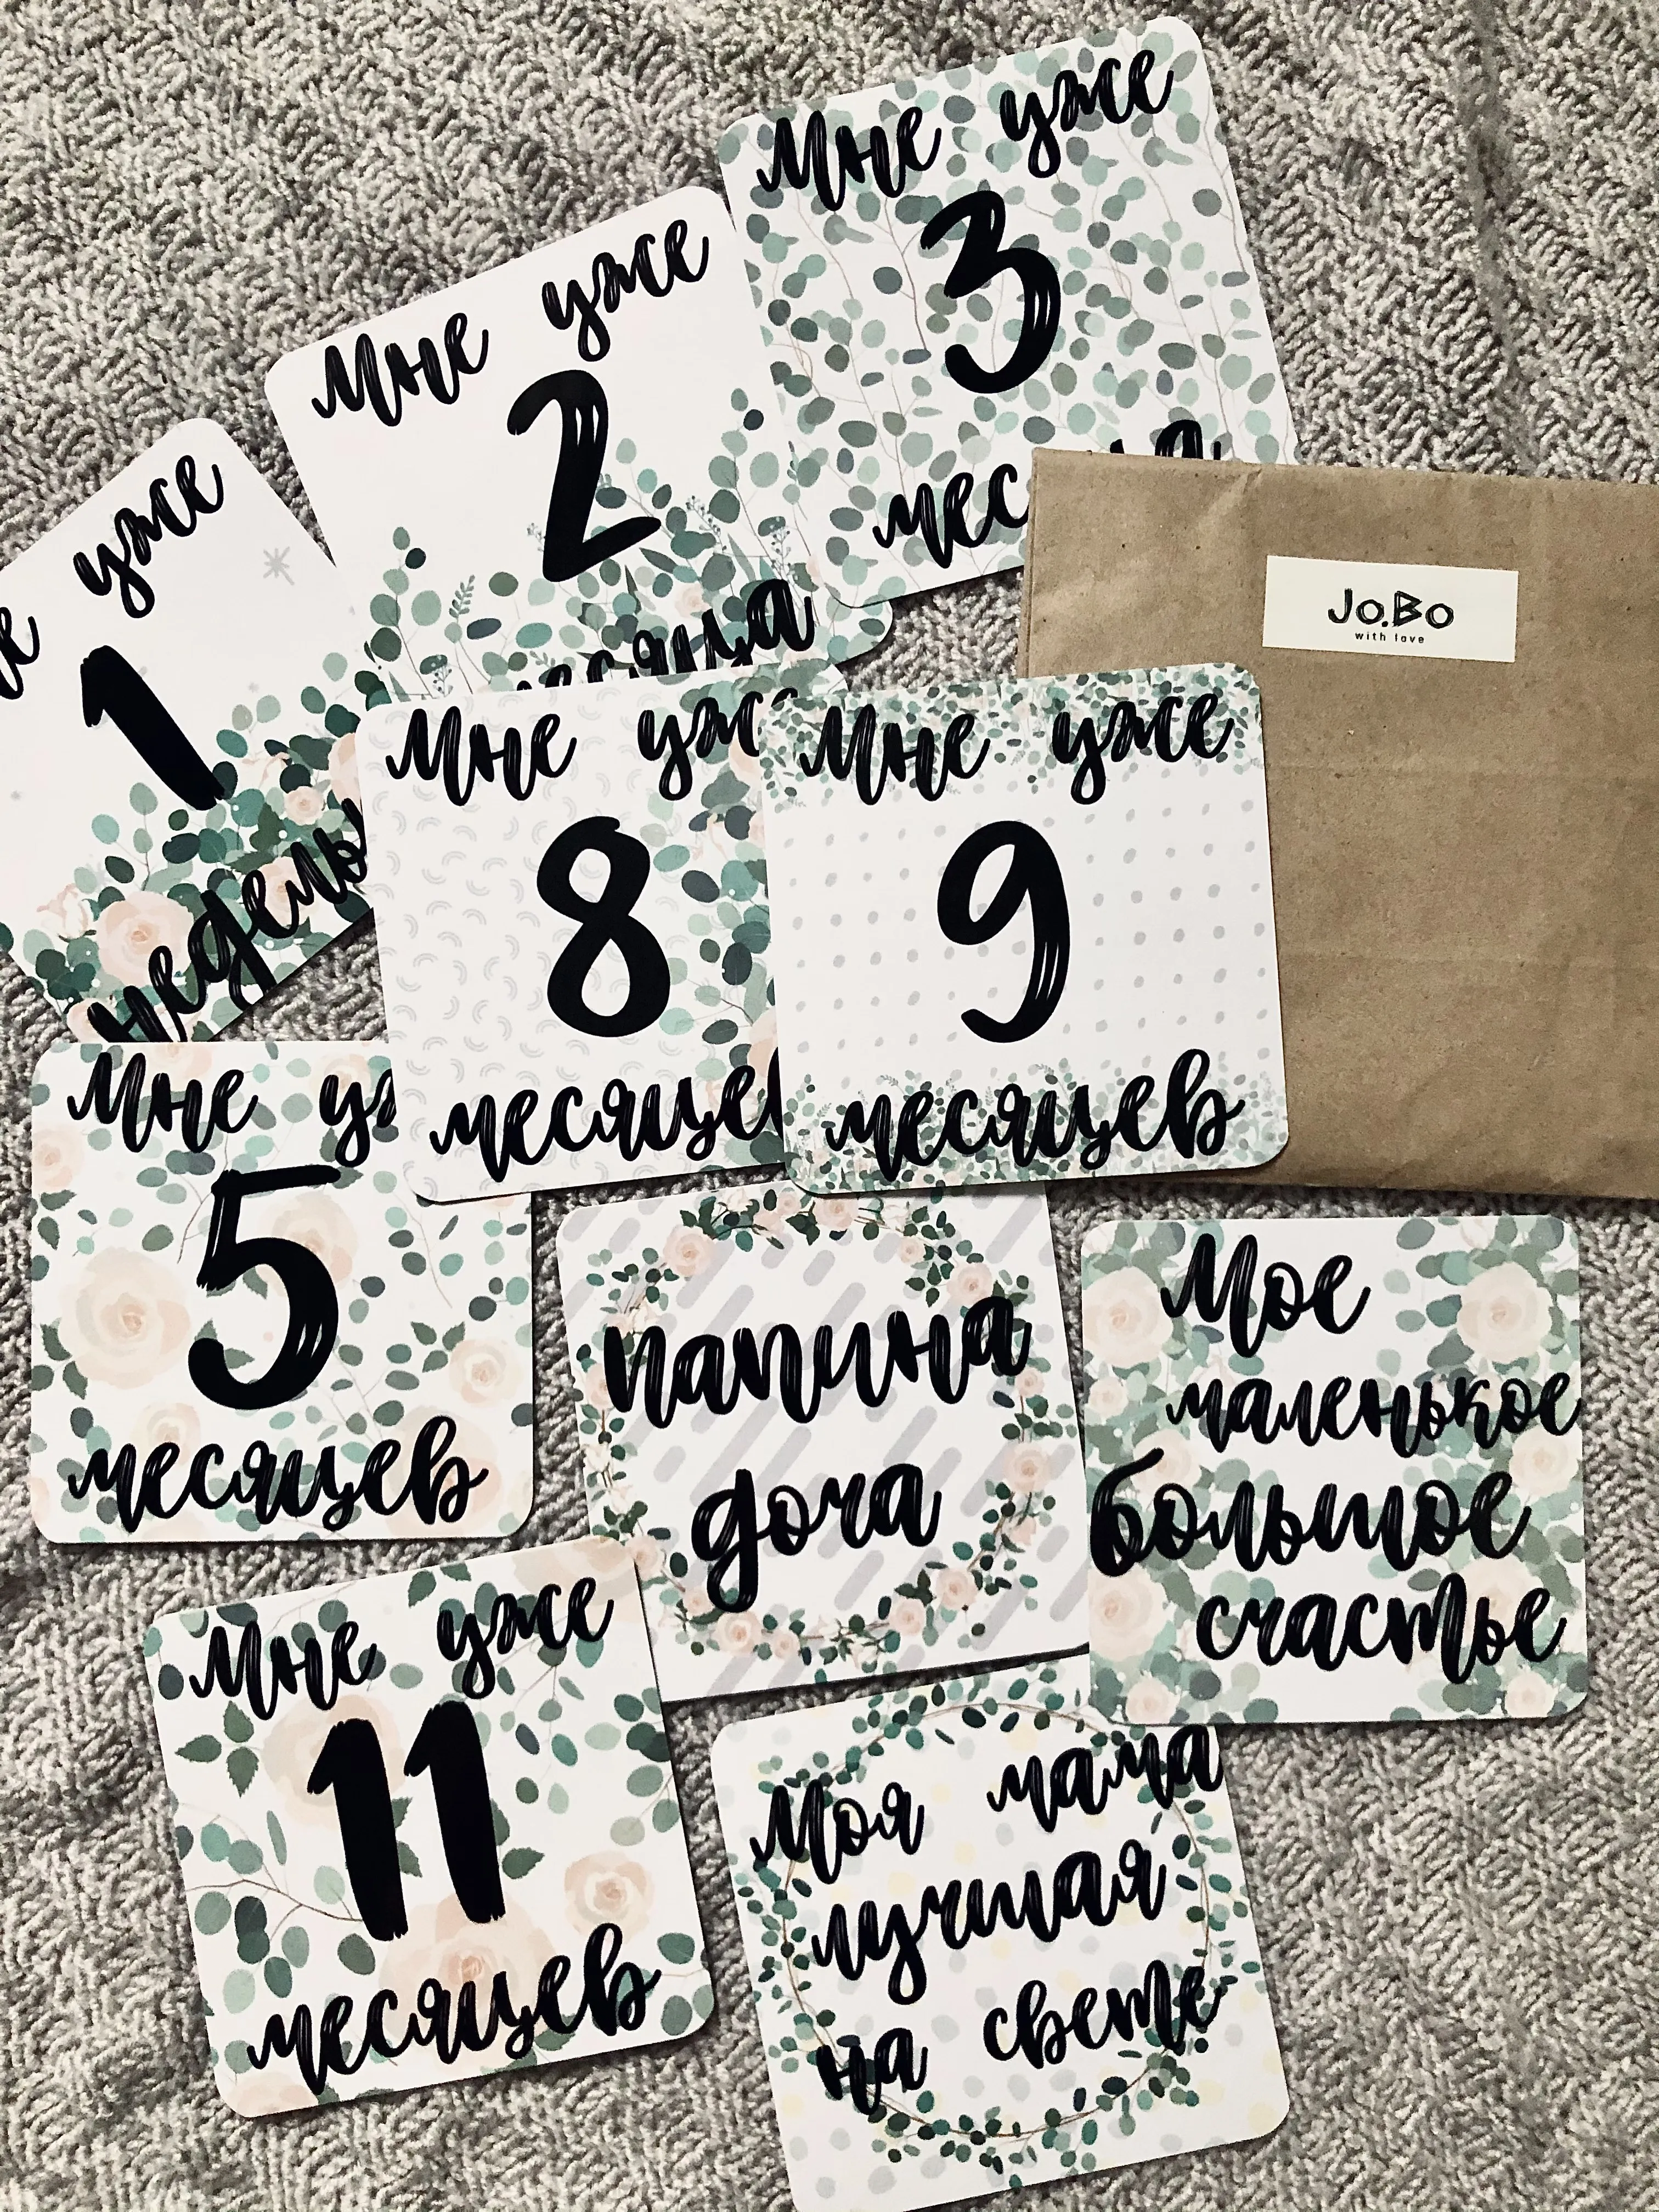 Мне уже
3
Мне уже
2
месяца
уже
1
недель
JO.BO
with love
Мне
8
месяце
Мне уже
9
месяцев
Мне
5
месяцев
папина
доча
Мое
маленькое
большое
счастье
Мне уже
11
месяцев
Моя мама
лучшая
на свете